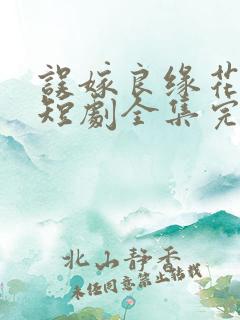 誤嫁良缘花
短劇全集完
北山静香
未经同意禁止转载